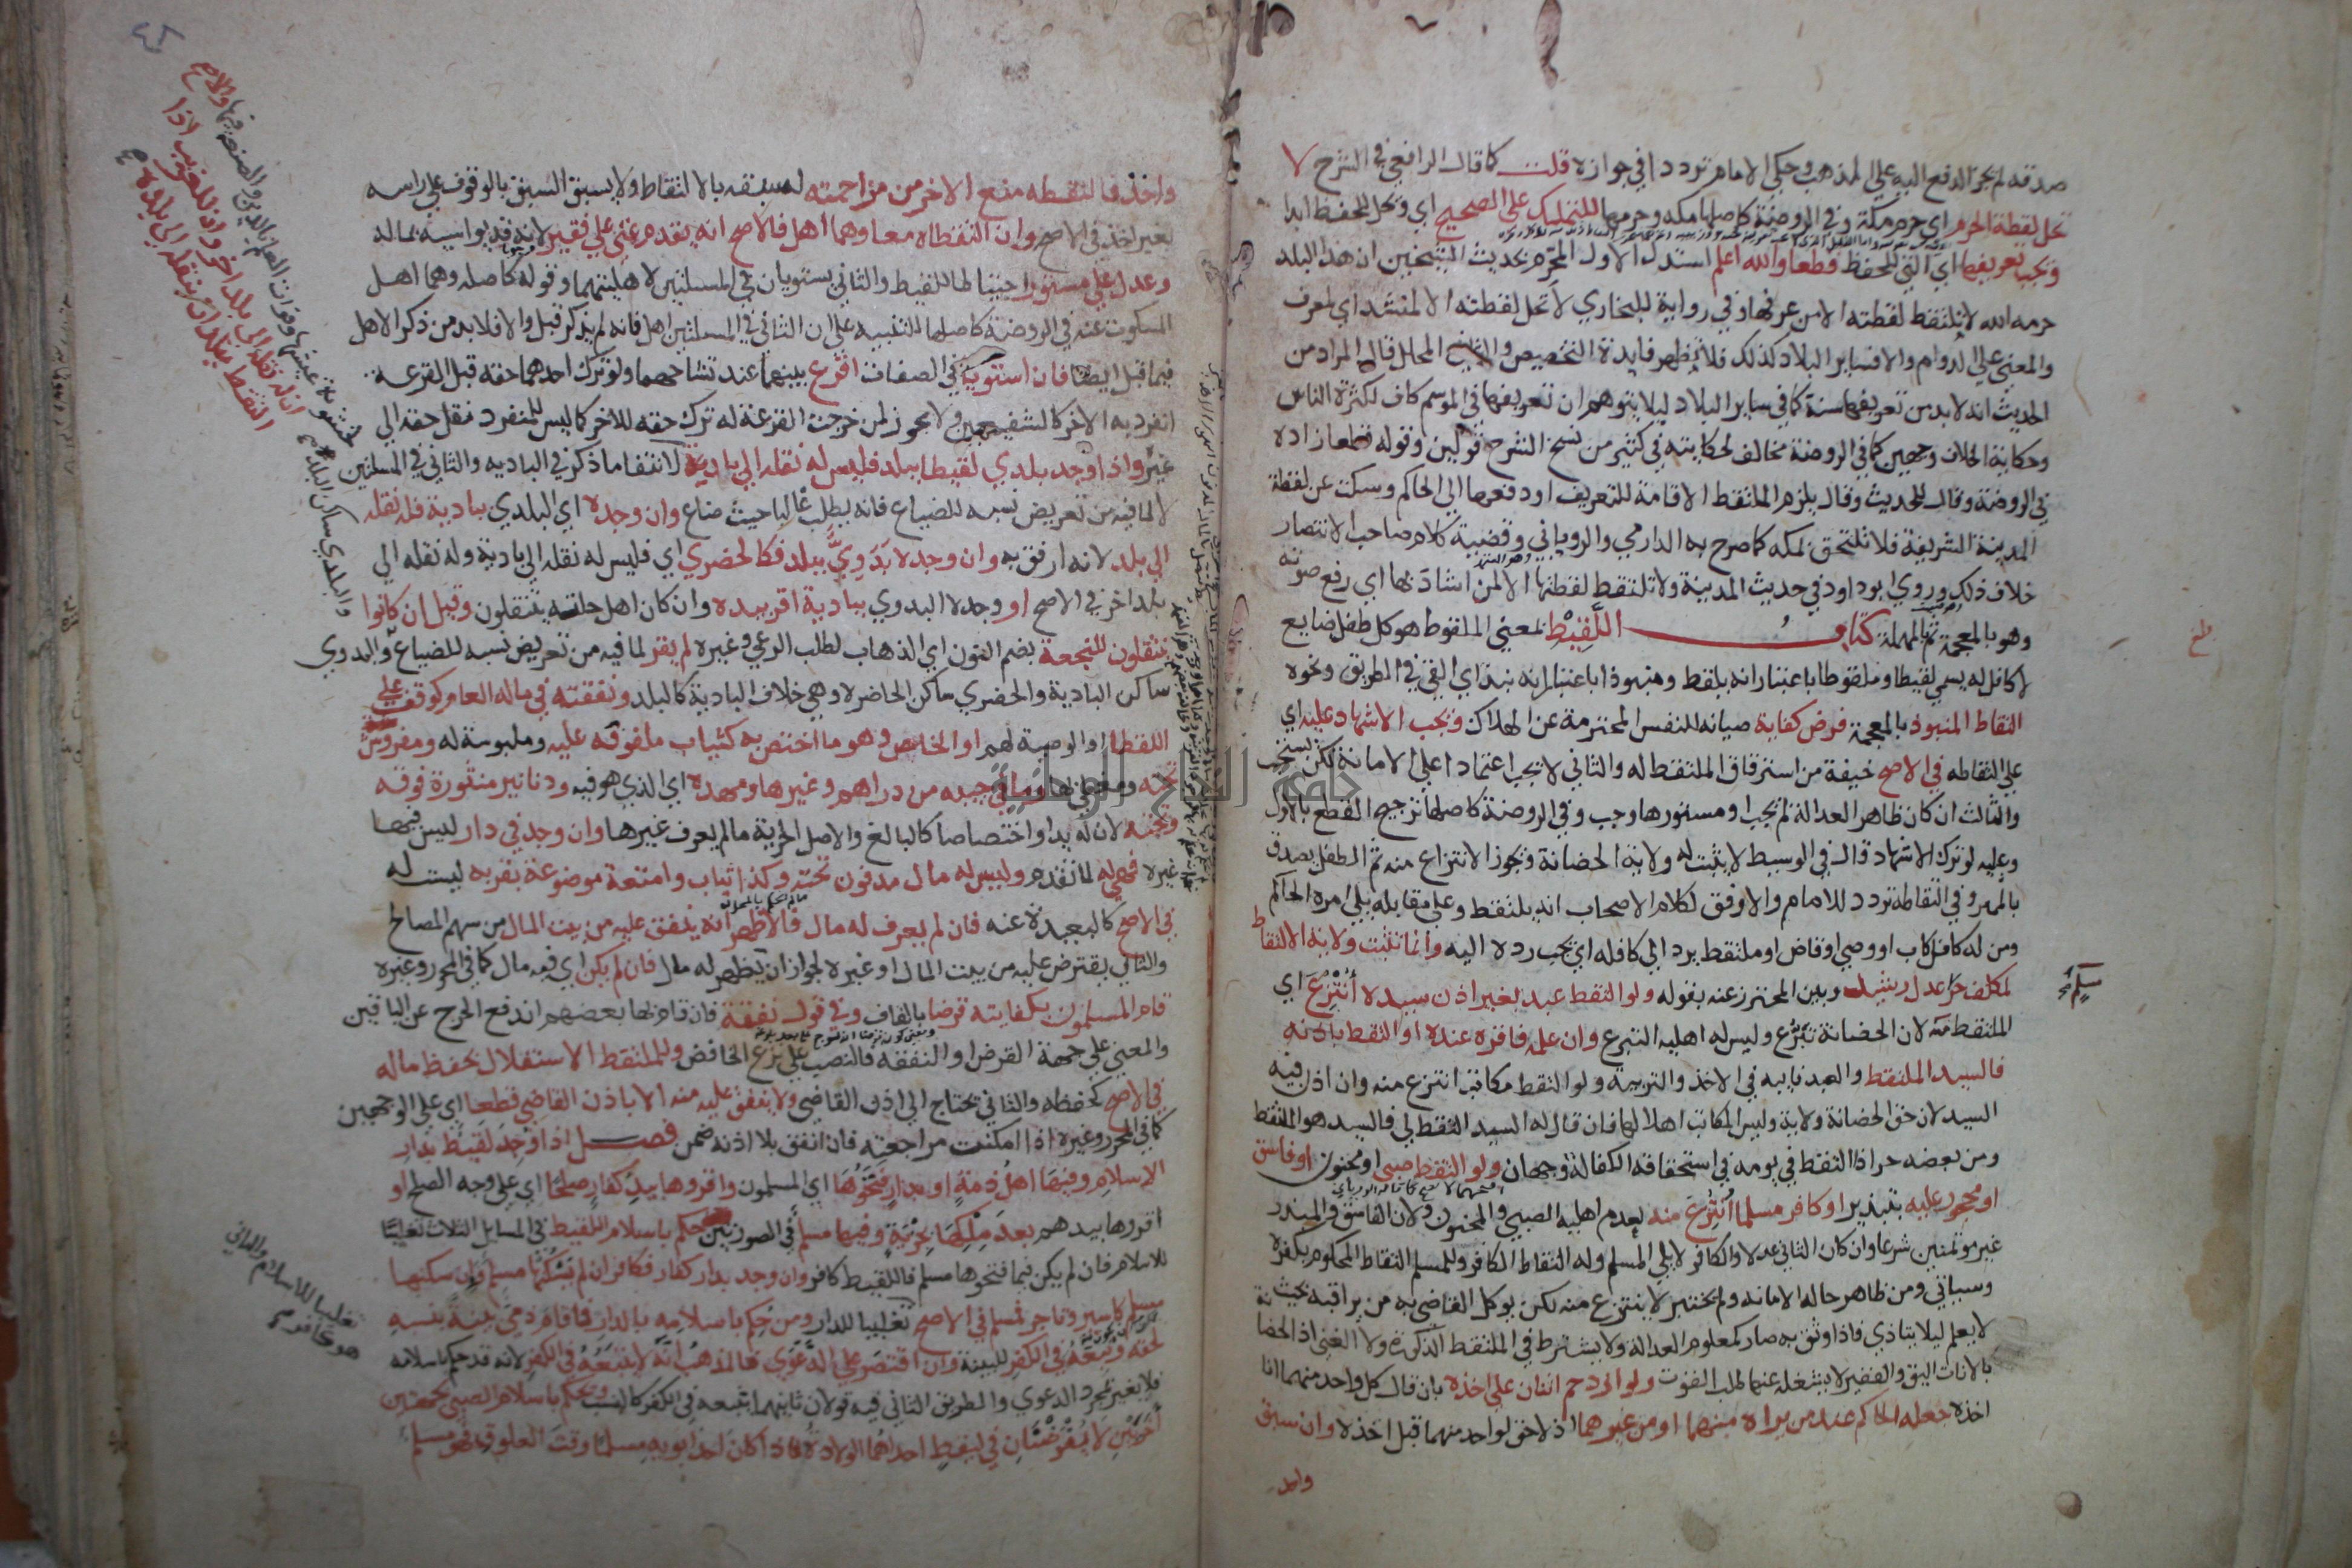 صدقه لم يجز الدفع اليه على المذهب وحكى الامام ترددا في جوازه قلت كما قال الرافعي في الشرح لا
تحل لقطة الحرم اي حرم مكة وفي الروضة كاصلها مكه وحرمها للتمليك على الصحيح اي وتحل للحفظ ابدا
ويجب تعريفها اي التي للحفظ قطعا والله اعلم استدل الاول المحرم بحديث الشيخين ان هذا البلد
حرمه الله لا يلتقط لقطته الا من عرفها وفي رواية للبخاري لا تحل لقطته الا لمنشد اي لمعرف
والمعنى على الدوام والا فساير البلاد كذلك فلا تظهر فايدة التخصيص والثاني المحلل قال المراد من
الحديث انه لا بد من تعريفها سنة كما في ساير البلاد ليلا يتوهم ان تعريفها في الموسم كاف لكثرة الناس
وحكاية الخلاف وجهين كما في الروضة مخالف لحكايته في كثير من نسخ الشرح قولين وقوله قطعا زاده
في الروضة وقال للحديث وقال يلزم الملتقط الاقامة للتعريف او دفعها الى الحاكم وسكت عن لقطة
المدينة الشريفة فلا تلتحق بمكه كما صرح به الدارمي والروياني وقضية كلام صاحب الانتصار
خلاف ذلك وروى ابو داود في حديث المدينة ولا تلتقط لقطتها الا لمن اشاد بها اي رفع صوته
وهو بالمعجمة ثم المهملة كتاب اللَّقِيْطِ بمعنى الملقوط هو كل طفل ضايع
لا كافل له يسمى لقيطا وملقوطا باعتبار انه يلقط ومنبوذا باعتبار انه نبذ اي القي في الطريق ونحوه
التقاط المنبوذ بالمعجمة فرض كفاية صيانه للنفس المحترمة عن الهلاك ويجب الاشهاد عليه اي
على التقاطه في الاصح خيفة من استرقاق الملتقط له والثاني لا يجب اعتمادا على الامانة لكن يستحب
والثالث ان كان ظاهر العدالة لم يجب او مستورها وجب وفي الروضة كاصلها ترجيح القطع بالاول
وعليه لو ترك الاشهاد قال في الوسيط لا يثبت له ولاية الحضانة ويجوز الانتزاع منه ثم الطفل يصدق
بالمميز وفي التقاطه تردد للامام والاوفق لكلام الاصحاب انه يلتقط وعلى مقابله يلي امره الحاكم
ومن له كافل كاب او وصي او قاض او ملتقط يرد الى كافله اي يجب رده اليه وانما تثبت ولاية الالتقاط
لمكلف حر عدل رشيد وبين المحترز عنه بقوله ولو التقط عبد بغير اذن سيده أُنْتُزِعَ اي
مسلم
الملتقط منه لان الحضانة تبرع وليس له اهليه التبرع وان علمه فاقره عنده او التقط باذنه
فالسيد الملتقط والعبد نايبه في الاخذ والتربية ولو التقط مكاتب انتزع منه وان اذن فيه
السيد لان حق الحضانة ولاية وليس المكاتب اهلا لها فان قال له السيد التقط لي فالسيد هو الملتقط
ومن بعضه حر اذا التقط في يومه في استحقاقه الكفالة وجهان ولو التقط صبي او مجنون او فاسق
او محجور عليه بتبذير او كافر مسلما أُنتُزِعَ منه لعدم اهلية الصبي والمجنون ولان الفاسق والمبذر
غير موتمنين شرعا وان كان الثاني عدلا والكافر لا يلي المسلم وله التقاط الكافر وللمسلم التقاط المحكوم بكفره
وسياتي ومن ظاهر حاله الامانه ولم يختبر لا ينتزع منه لكن يوكل القاضي به من يراقبه بحيث
لا يعلم ليلا يتاذى فاذا وثق به صار كمعلوم العدالة ولا يشترط في الملتقط الذكورة ولا الغنى اذ الحضانة
بالاناث اليق والفقير لا يشغله عنها طلب القوت ولو ازدحم اثنان على اخذه بان قال كل واحد منهما انا
اخذه جعله الحاكم عند من يراه منهما او من غيرهما اذ لا حق لواحد منهما قبل اخذه وان سبق
واحد
واحد فالتقطه منع الاخر من مزاحمته له لسبقه بالالتقاط ولا يسبق السبق بالوقوف على راسه
بغير اخذ في الاصح وان التقطاه معا وهما اهل فالاصح انه يقدم غني على فقير لانه قد يواسيه بماله
وعدل على مستور احتياطا للقيط والثاني يستويان في المسلتين لاهليتهما وقوله كاصله وهما اهل
المسكوت عنه في الروضة كاصلها للتنبيه على ان الثاني في المسلتين اهل فانه لم يذكر قبل والا فلا بد من ذكر الاهل
فيما قبل ايضا فان استويا في الصفات اقرع بينهما عند تشاحهما ولو ترك احدهما حقه قبل القرعة
انفرد به الاخر كالشفيعين ولا يجوز لمن خرجت القرعة له ترك حقه للاخر كما ليس للمنفرد نقل حقه الى
غيره واذا وجد بلدي لقيطا ببلد فليس له نقله الى بادية لانتفا ما ذكر في الباديه والثاني في المسلتين
لما فيه من تعريض نسبه للضياع فانه يطلب غالبا حيث ضاع وان وجده اي البلدي ببادية فله نقله
الى بلد لانه ارفق به وان وجده بَدَوِيٌّ ببلد فكالحضري اي فليس له نقله الى بادية وله نقله الى
بلد اخر في الاصح او وجده البدوي ببادية اقر بيده وان كان اهل حلته ينتقلون وقيل ان كانوا
ينتقلون للنجعة بضم النون اي الذهاب لطلب الرعي وغيره لم يقر لما فيه من تعريض نسبه للضياع والبدوي
ساكن البادية والحضري ساكن الحاضرة وهي خلاف البادية كالبلد ونفقته في ماله العام كوقف على
اللقطا او الوصية لهم او الخاص وهو ما اختص به كثياب ملفوفه عليه وملبوسة له ومفروشة
تحته ومغطى بها وما في جيبه من دراهم وغيرها ومهده اي الذي هو فيه ودنانير منثورة فوقه
وتحته لان له يدا واختصاصا كالبالغ والاصل الحرية ما لم يعرف غيرها وان وجد في دار ليس فيها
غيره فهي له لما تقدم وليس له مال مدفون تحته وكذا ثياب وامتعة موضوعة بقربه ليست له
في الاصح كالبعيدة عنه فان لم يعرف له مال فالاظهر انه ينفق عليه من بيت المال من سهم المصالح
والثاني يقترض عليه من بيت المال او غيره لجواز ان يظهر له مال فان لم يكن اي فيه مال كما في المحرر وغيره
قام المسلمون بكفايته قرضا بالقاف وفي قول نفقة فان قام بها بعضهم اندفع الحرج عن الباقين
والمعنى على جهة القرض او النفقه فالنصب على نزع الخافض وللملتقط الاستقلال بحفظ ماله
في الاصح كحفظه والثاني يحتاج الى اذن القاضي ولا ينفق عليه منه الا باذن القاضي قطعا اي على الوجهين
كما في المحرر وغيره اذا امكنت مراجعته فان انفق بلا اذنه ضمن فصل اذا وُجِدَ لَقِيطٌ بدار
الاسلام وفيها اهلُ ذمةٍ او بدارٍ فتحُوْهَا اي المسلمون واقروها بيدِ كفارٍ صُلحًا اي على وجه الصلح او
اقروها بيدهم بعدَ مِلْكِهَا بِجزْيَةٍ وفيها مسلم في الصورتين حكم باسلام اللقيط في المسايل الثلاث تغليبا
للاسلام فان لم يكن فيما فتحوها مسلم فاللقيط كافر وان وجد بدار كفار فكافر ان لم يَسْكُنْهَا مسلم وان سكنها
مسلم كاسير وتاجر فمسلم في الاصح تغليبا للدار ومن حُكِم باسلامه بالدار فاقام ذمي بَيِّنةً بنسبهِ
لحقه وتَبِعَهُ في الكفرِ للبينة وان اقتصَر على الدَّعْوَى فالمذهبُ انَّه لا يتبَعُهُ في الكفرِ لانه قد حكم باسلامه
فلا يغير بمجرد الدعوى والطريق الثاني فيه قولان ثانيهما يتبعه في الكفر كالنسب ويحكم باسلام الصبي بجهتين
أُخْرَيَيْنِ لَا يُفْرَضَانِ في لقيطٍ احداهُما الولادةُ فاذا كان احد ابويه مسلمًا وقتَ العلوقِ فهو مسلم
تغليبا للاسلام والثاني
هو كافر